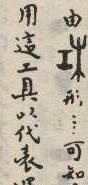 由形…可知
用這工具以代表